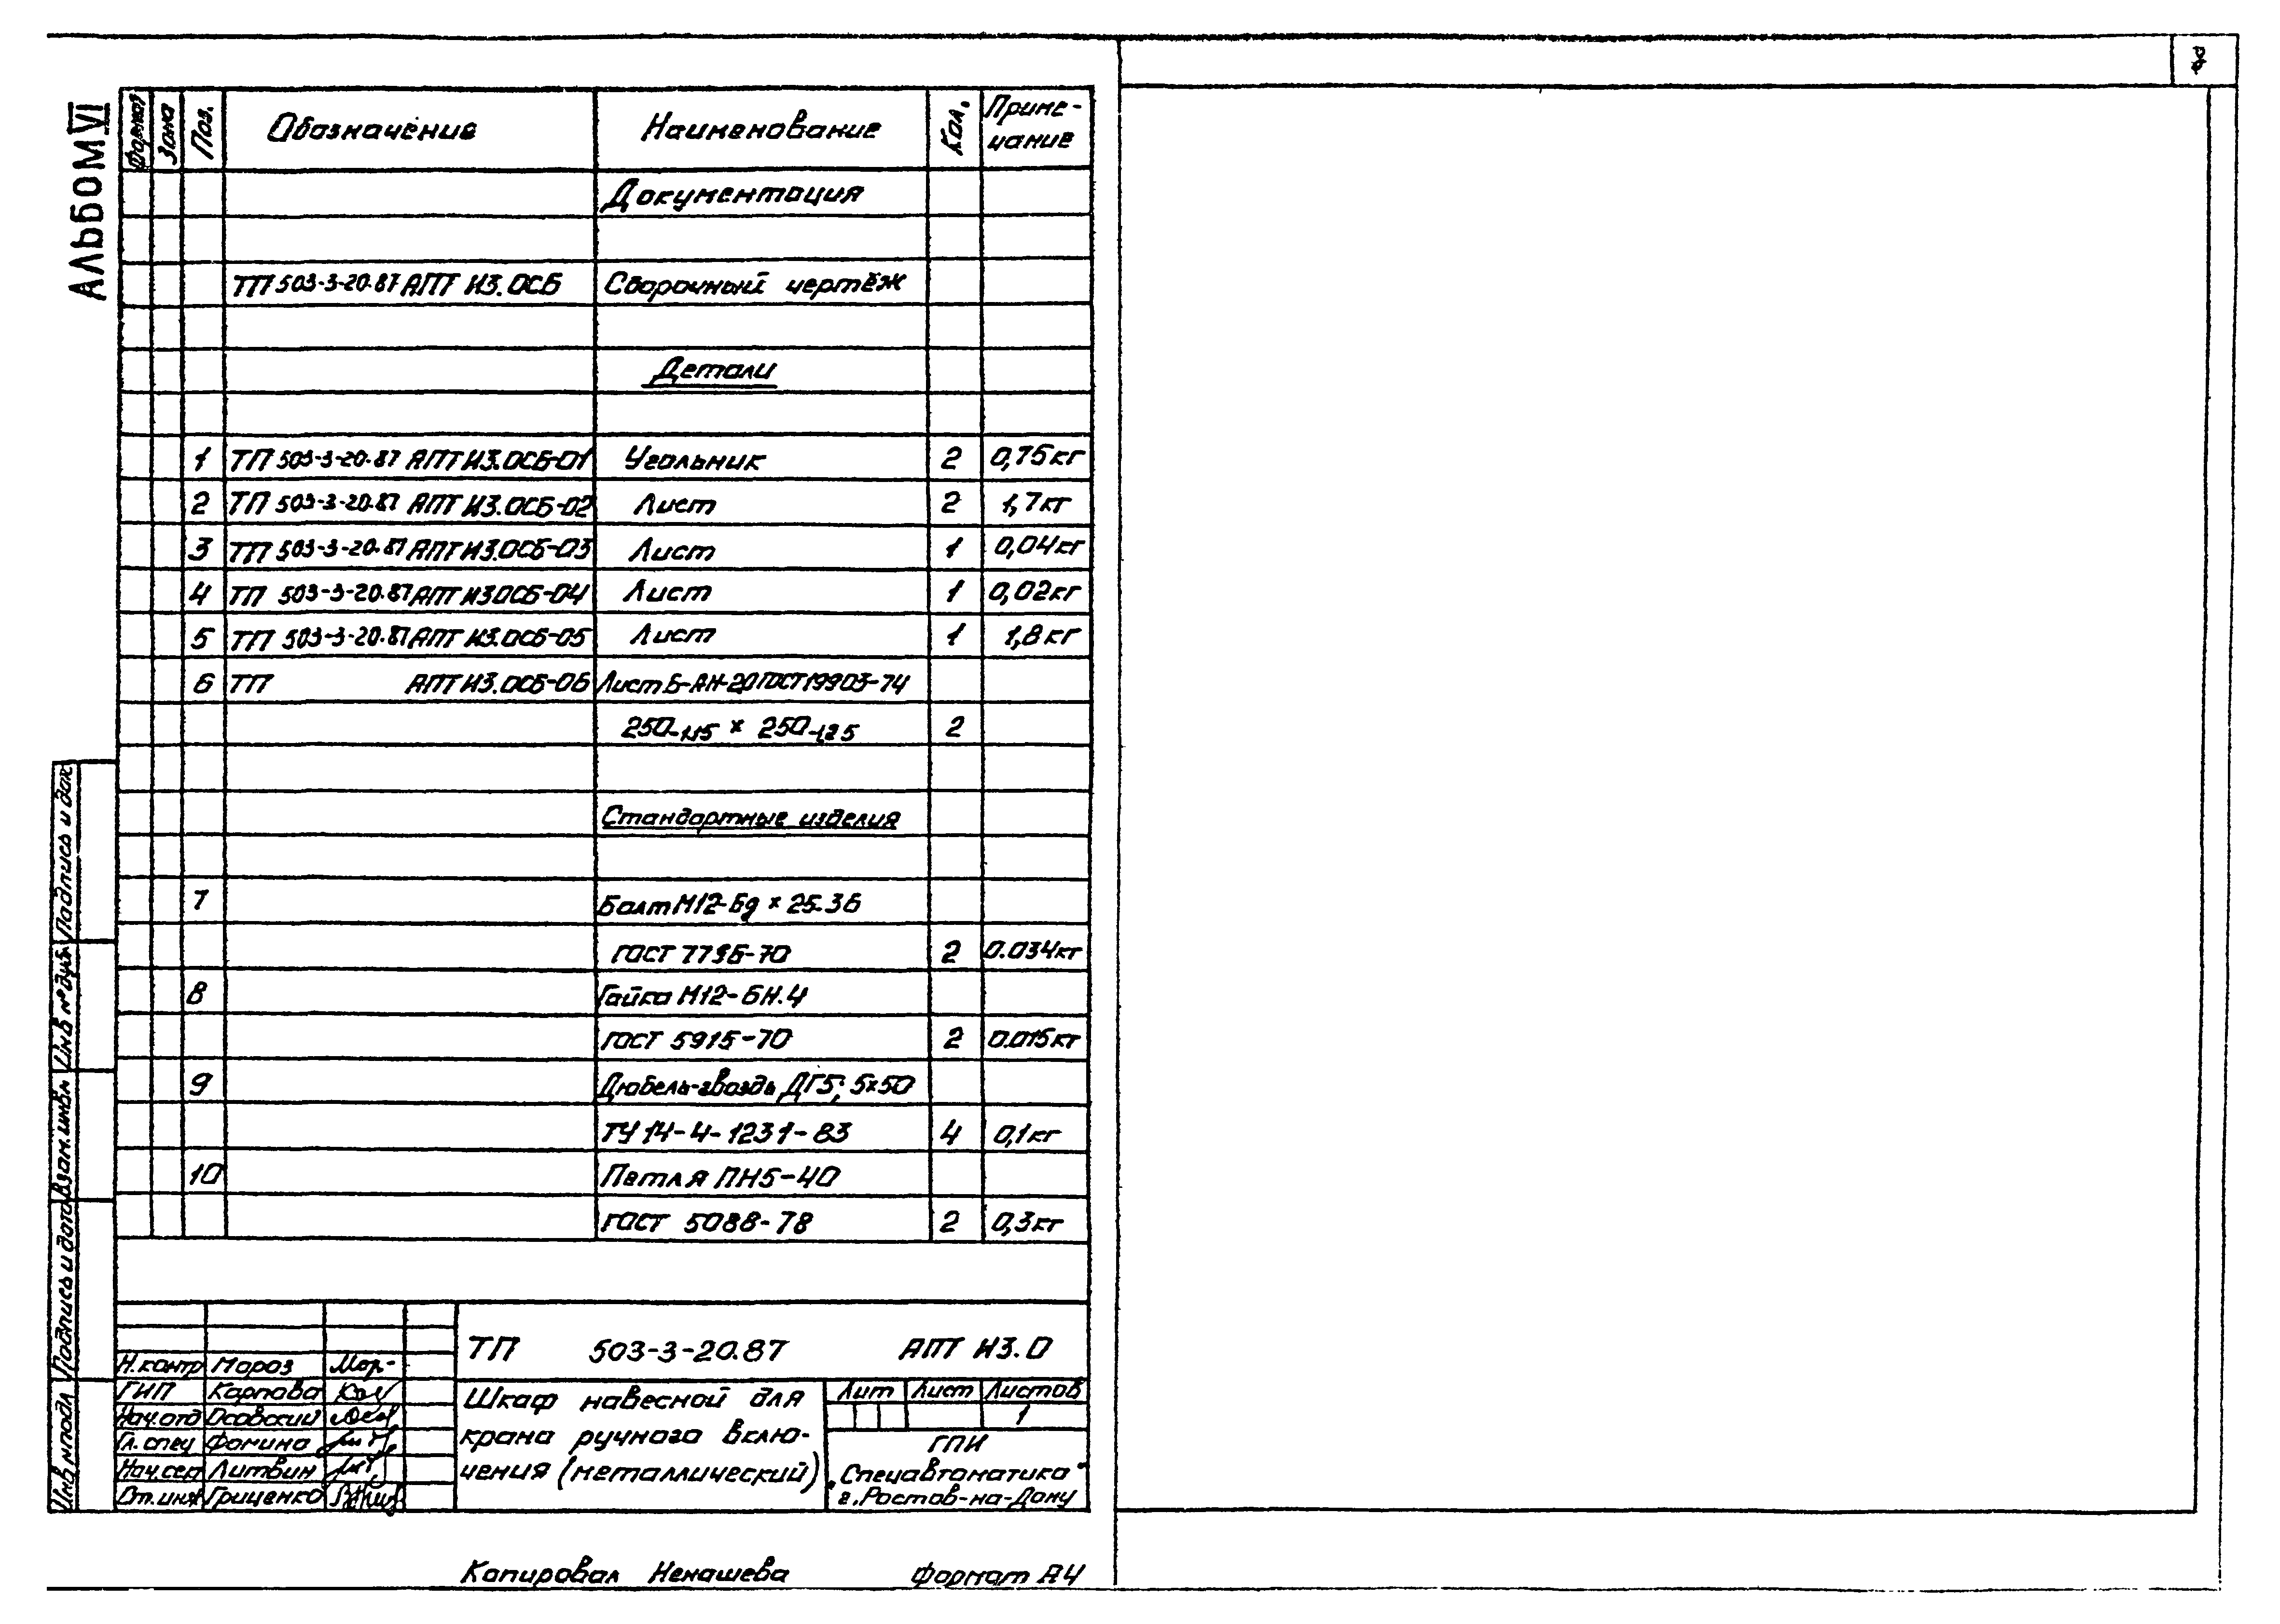 АЛЬБОМ VI
Формат Зона Поз. Обозначение Наименование Кол. Приме-
чание
Документация
ТП 503-3-20.87 АПТ ИЗ.ОСБ Сборочный чертёж
Детали
1 ТП 503-3-20.87 АПТ ИЗ.ОСБ-01 Угольник 2 0,75кг
2 ТП 503-3-20.87 АПТ ИЗ.ОСБ-02 Лист 2 1,7кг
3 ТП 503-3-20.87 АПТ ИЗ.ОСБ-03 Лист 1 0,04кг
4 ТП 503-3-20.87 АПТ ИЗ.ОСБ-04 Лист 1 0,02кг
5 ТП 503-3-20.87 АПТ ИЗ.ОСБ-05 Лист 1 1,8кг
6 ТП АПТ ИЗ.ОСБ-06 Лист Б-АН-20 ГОСТ 19903-74
250-1,15 × 250-1,25 2
Стандартные изделия
7 Болт М12-6g × 25.36
ГОСТ 7796-70 2 0.034кг
8 Гайка М12-6Н.4
ГОСТ 5915-70 2 0.015кг
9 Дюбель-гвоздь ДГ5; 5×50
ТУ 14-4-1231-83 4 0,1кг
10 Петля ПН5-40
ГОСТ 5088-78 2 0,3кг
ТП 503-3-20.87 АПТ ИЗ.О
Н.контр Мороз
ГИП Карпова
Нач.отд Осовский
Гл.спец Фомина
Нач.сек Литвин
Вт.инж Гриценко
Шкаф навесной для
крана ручного вклю-
чения (металлический)
Лит Лист Листов
1
ГПИ
"Спецавтоматика"
г.Ростов-на-Дону
Инв.№подл Подпись и дата Взам.инв.№ Инв №дубл Подпись и дат.
Копировал Ненашева Формат А4